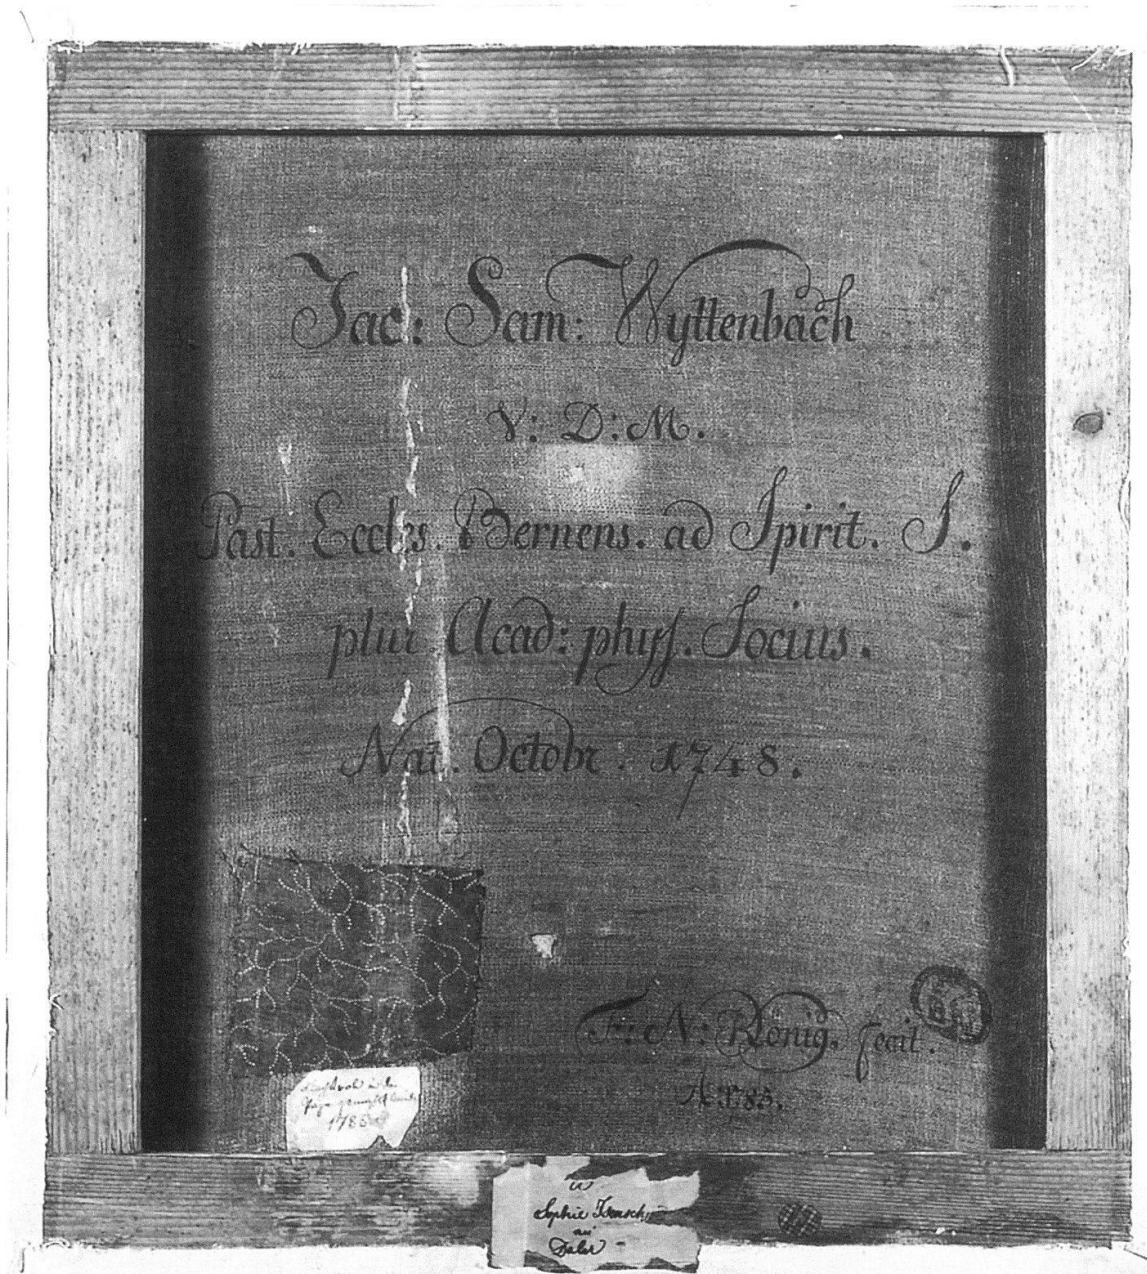 Jac: Sam: Wyttenbach
V: D: M.
Past. Eccles. Bernens. ad Spirit. S.
plur. Acad: physs. Socius.
Nat. Octobr. 1748.
F: N: König. fecit.
A. 1785.
1785
Sophie